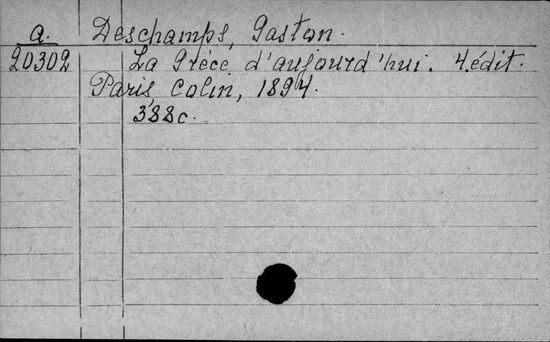 a. Deschamps, Gaston.
20302 La Grèce d'aujourd'hui. 4.édit.
Paris, Colin, 1894.
388c.